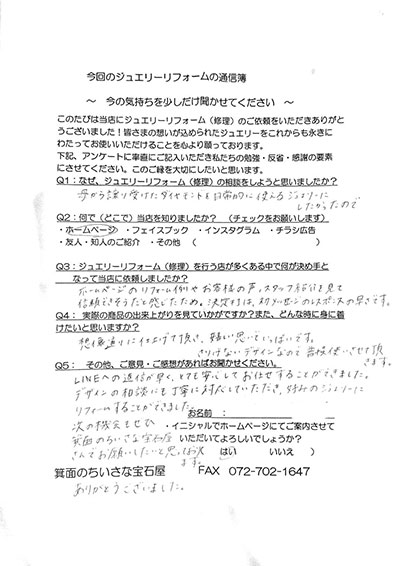 今回のジュエリーリフォームの通信簿
～ 今の気持ちを少しだけ聞かせてください ～
このたびは当店にジュエリーリフォーム（修理）のご依頼をいただきありがと
うございました！皆さまの想いが込められたジュエリーをこれからも永きに
わたってお使いいただけることを心より願っております。
下記、アンケートに率直にご記入いただき私たちの勉強・反省・感謝の要素
にさせてください。このご縁を大切にしたいと思います。
Q1：なぜ、ジュエリーリフォーム（修理）の相談をしようと思いましたか？
母から譲り受けたダイヤモンドを日常的に使えるジュエリーに
したかったので
Q2：何で（どこで）当店を知りましたか？ （チェックをお願いします）
・ホームページ ・フェイスブック ・インスタグラム ・チラシ広告
・友人・知人のご紹介 ・その他 （ ）
Q3：ジュエリーリフォーム（修理）を行う店が多くある中で何が決め手と
なって当店に依頼しましたか？
ホームページのリフォーム例やお客様の声、スタッフ紹介を見て
信頼できそうだと感じたため。決め手は、メッセージのレスポンスの早さです。
Q4： 実際の商品の出来上がりを見ていかがですか？また、どんな時に身に着
けたいと思いますか？
想像通りに仕上げて頂き、嬉しい思いでいっぱいです。
さりげないデザインなので普段使いさせて頂
きます。
Q5： その他、ご意見・ご感想があればお聞かせください。
LINEへの返信が早く、とても安心してお任せすることができました。
デザインの相談にも丁寧に対応していただき、好みのジュエリーに
リフォームすることができました。
お名前：
次の機会もぜひ
・イニシャルでホームページにてご案内させて
箕面のちいさな宝石屋
いただいてよろしいでしょうか？
さんでお願いしたいと思ってお
（ はい いいえ ）
ります。
箕面のちいさな宝石屋 FAX 072-702-1647
ありがとうございました。